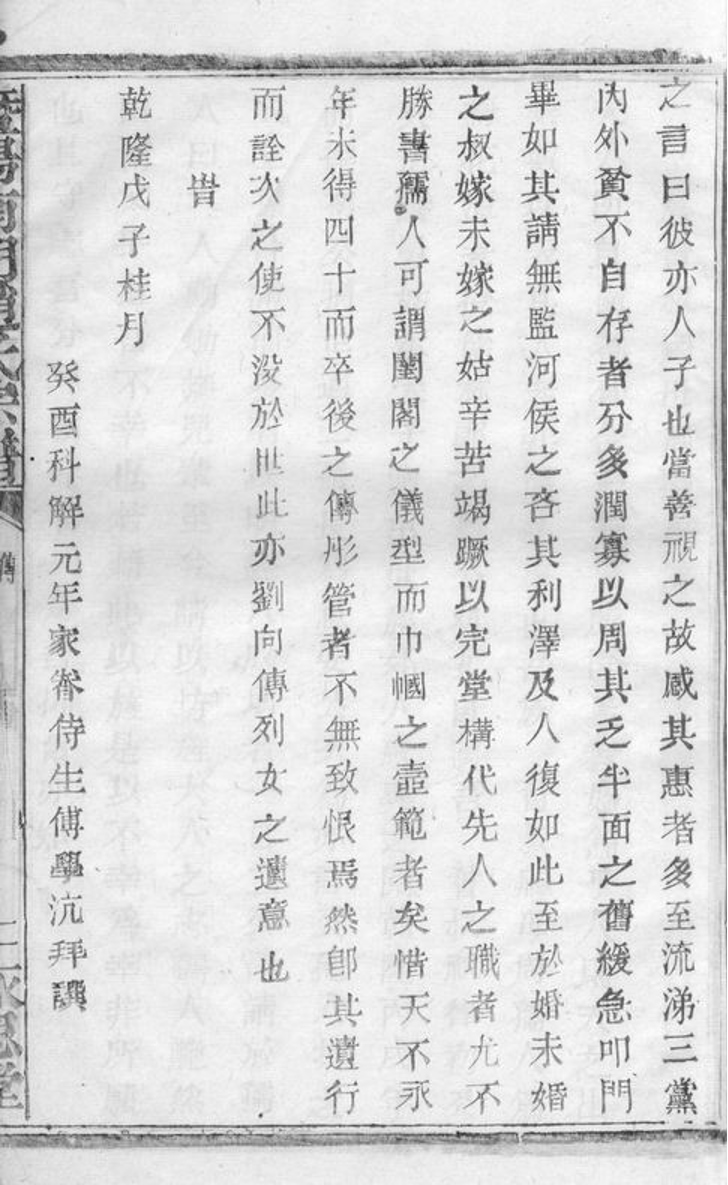 之言曰彼亦人子也當善視之故感其惠者多至流涕三黨
內外貧不自存者分多潤寡以周其乏半面之舊緩急叩門
畢如其請無監河侯之吝其利澤及人復如此至於婚未婚
之叔嫁未嫁之姑辛苦竭蹶以完堂構代先人之職者尤不
勝書孺人可謂閨閣之儀型而巾幗之壼範者矣惜天不永
年未得四十而卒後之傳彤管者不無致恨焉然卽其遺行
而詮次之使不没於世此亦劉向傳列女之遺意也
旹
乾隆戊子桂月
癸酉科解元年家眷侍生傅學沆拜譔
暨陽南門趙氏宗譜
傳
永思堂